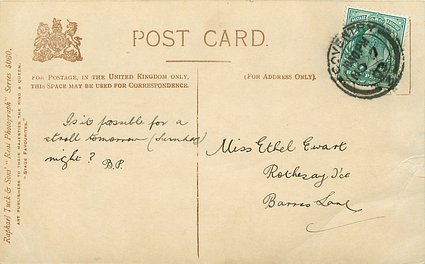 POST CARD.
FOR POSTAGE, IN THE UNITED KINGDOM ONLY,
THIS SPACE MAY BE USED FOR CORRESPONDENCE.
(FOR ADDRESS ONLY).
Is it possible for a
stroll tomorrow (Sunday)
night?
B.P.
Miss Ethel Ewart
Rothesay Ho
Barras Lane
COVENTRY
Raphael Tuck & Sons' "Real Photograph" Series 5060.
ART PUBLISHERS TO THEIR MAJESTIES THE KING & QUEEN.
"STAGE FAVOURITES."